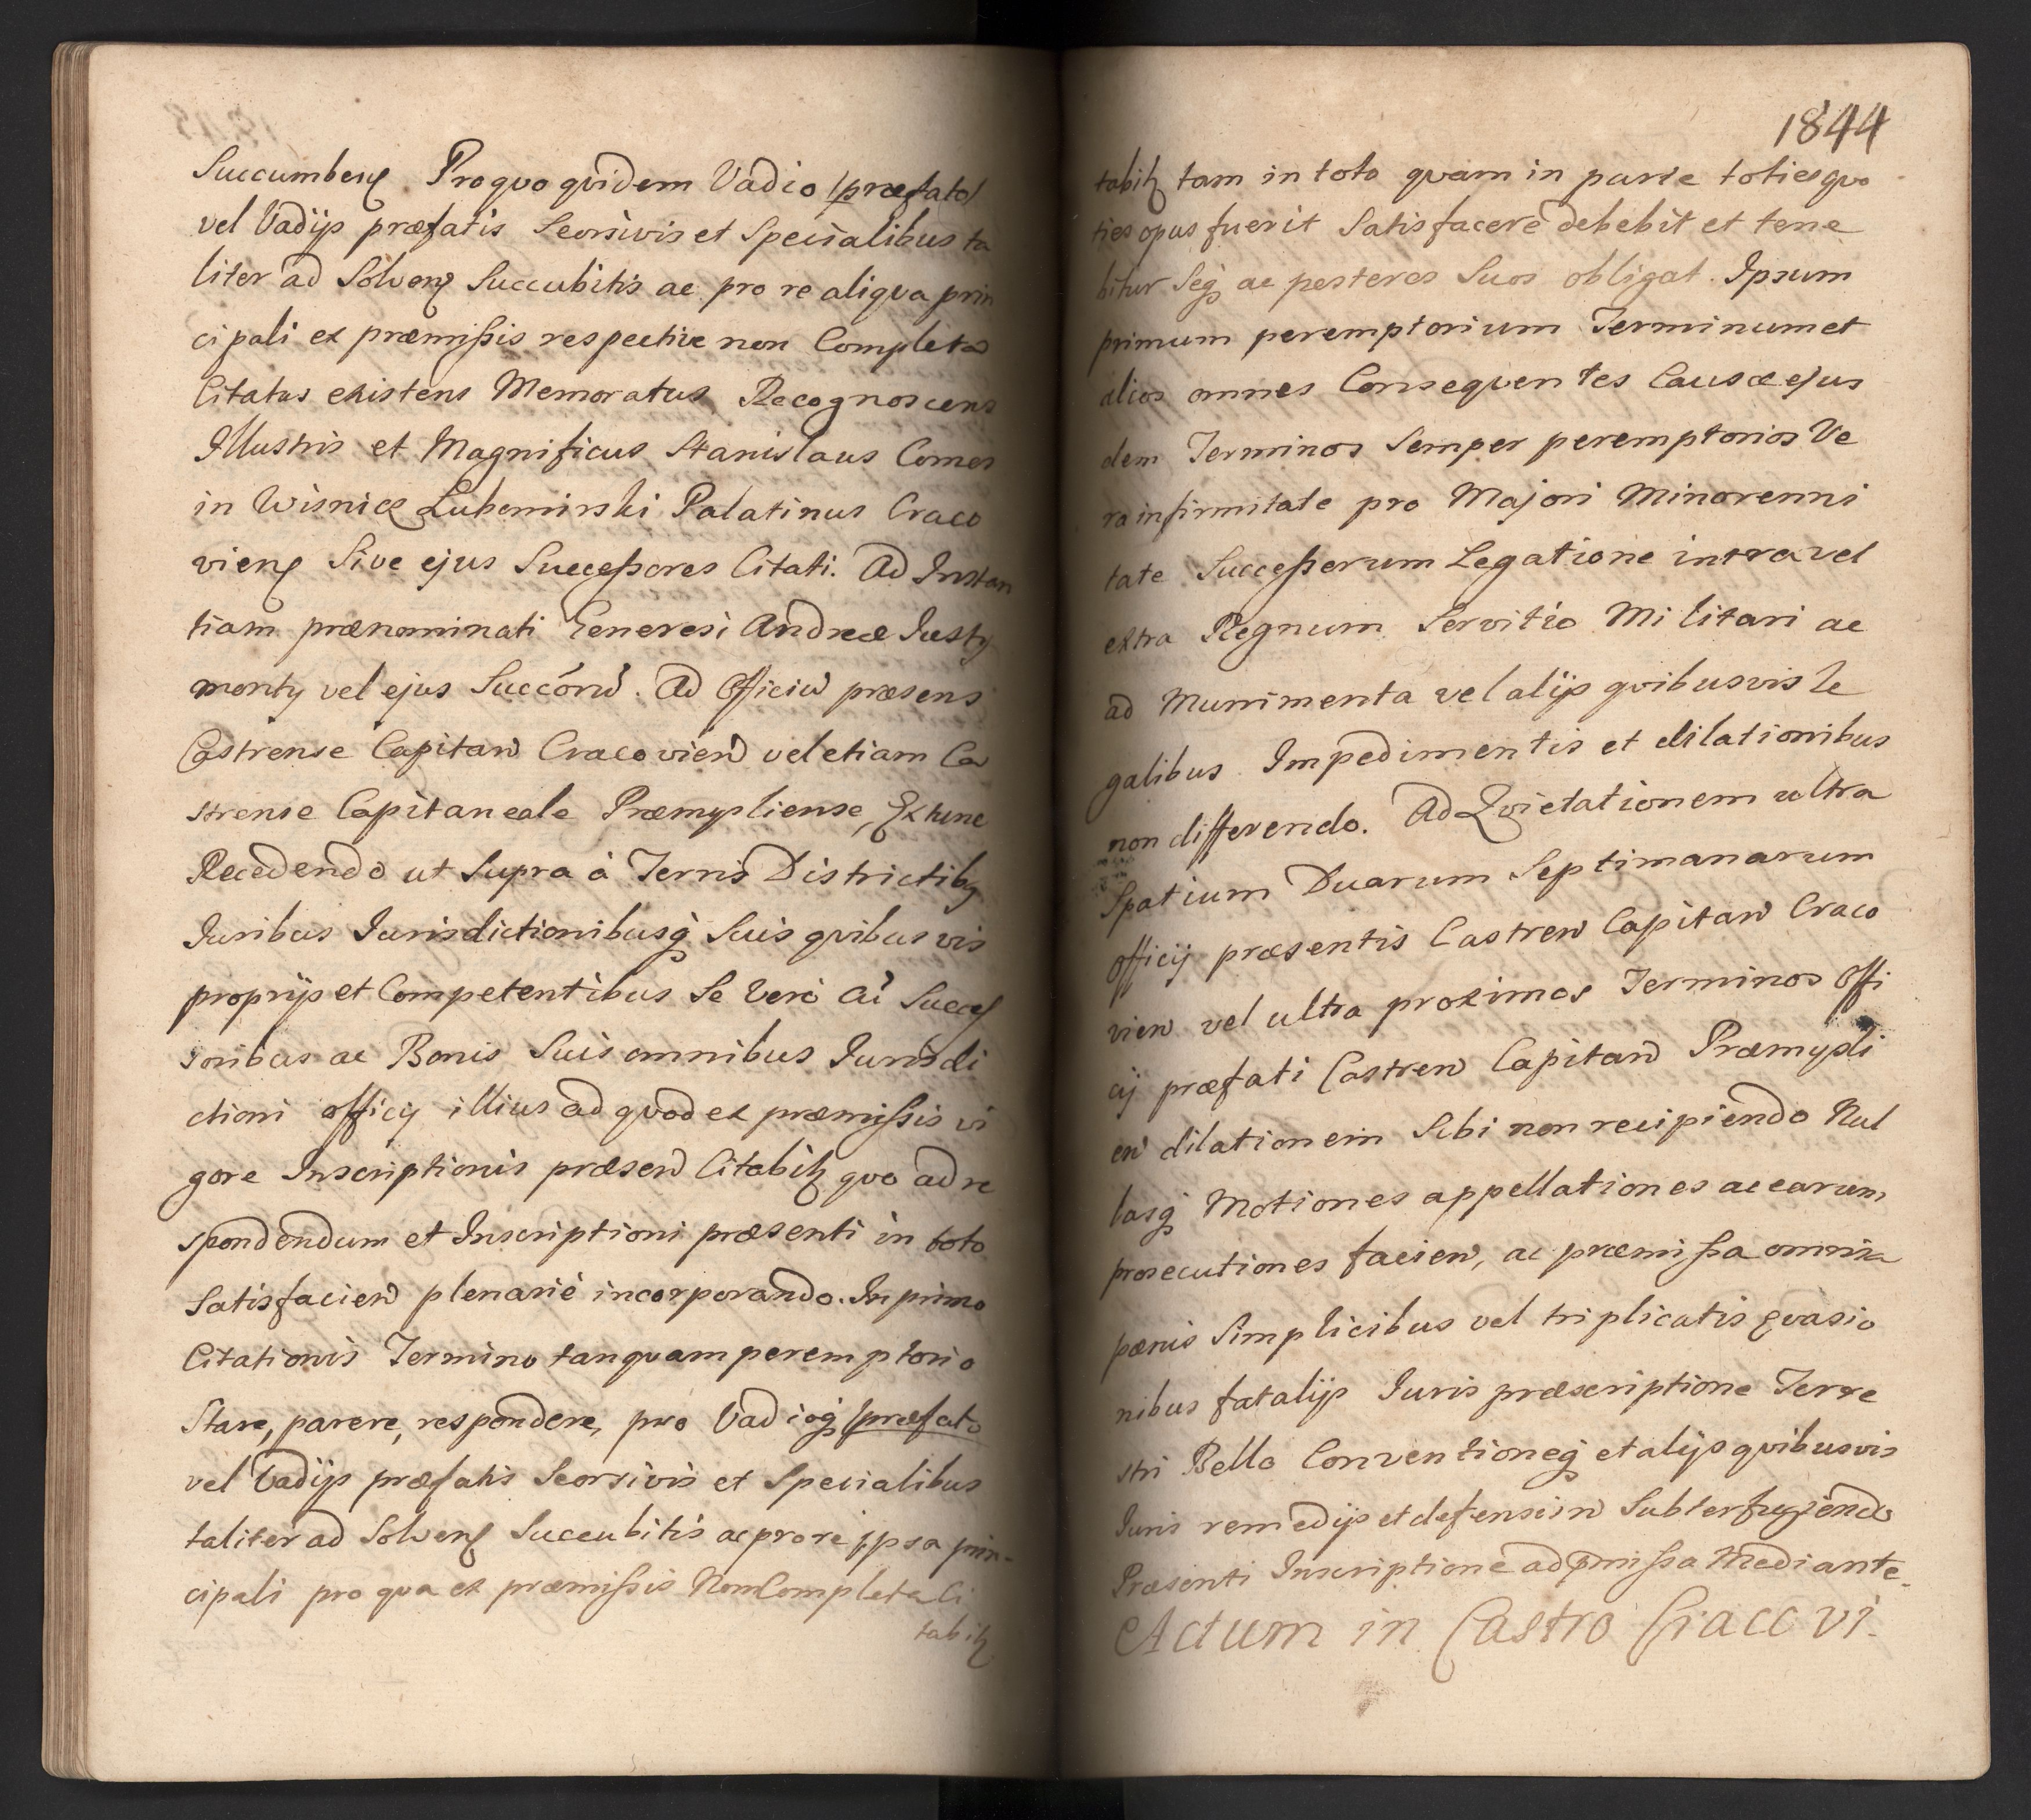 Succumbenꝭ Pro quo qvidem Vadio (præfato)
vel Vadijs præfatis Seorsivis et Specialibus ta
liter ad Solvenꝭ Succubitis ac pro re aliqva prin
cipali ex præmissis respective non Completa
Citatus existens Memoratus Recognoscens
Illustris et Magnificus Stanislaus Comes
in Wisnice Lubomirski Palatinus Craco
vienꝭ Sive ejus Successores Citati. Ad Instan
tiam prænominati Generosi Andreæ Justy
monty vel ejus Succorū. Ad Officiū præsens
Castrense Capitan Cracovien vel etiam Ca
strense Capitaneale Præmysliense, Extunc
Recedendo ut Supra à Terris Districtibꝫ
Juribus Jurisdictionibusq Suis qvibusvis
proprijs et Competentibus Se Verò cū Succes
soribus ac Bonis Suis omnibus Jurisdi
ctioni officij illius ad qvod ex præmissis vi
gore Inscriptionis præsen Citabitꝛ qvo ad re
spondendum et Inscriptioni præsenti in toto
Satisfacien plenariè incorporando. In primo
Citationis Termino tanqvam peremptorio
Stare, parere, respondere, pro Vadioq (præfato
vel Vadijs præfatis Seorsivis et Specialibus
taliter ad Solvenꝭ Succubitis ac pro re ipsa prin-
cipali pro qva ex præmissis Non Completa Ci
tabitꝛ
1844
tabitꝛ tam in toto qvam in parte toties qvo
ties opus fuerit Satisfacere debebit et tene
bitur Seq ac posteros Suos obligat. Ipsum
primum peremptorium Terminum et
alios omnes Conseqventes Causæ ejus
dem Terminos Semper peremptorios Ve
ra infirmitate pro Majori Minorenni
tate Successorum Legatione intra vel
extra Regnum Servitio Militari ac
ad Munimenta vel alijs qvibusvis le
galibus Impedimentis et dilationibus
non differendo. Ad Qvietationem ultra
Spatium Duarum Septimanarum
officij præsentis Castren Capitan Craco
vien vel ultra proximos Terminos Offi
cij præfati Castren Capitan Præmysli
en dilationem Sibi non recipiendo Nul
lasq Motiones appellationes ac earum
prosecutiones facien, ac præmissa omnia
pænis Simplicibus vel triplicatis qvasio
nibus fatalijs Juris præscriptione Terre
stri Bello Conventioneq et alijs qvibusvis
Juris remedijs et defension Subterfugiendo
Præsenti Inscriptione ad pmissa Mediante.
Actum in Castro Cracovi-